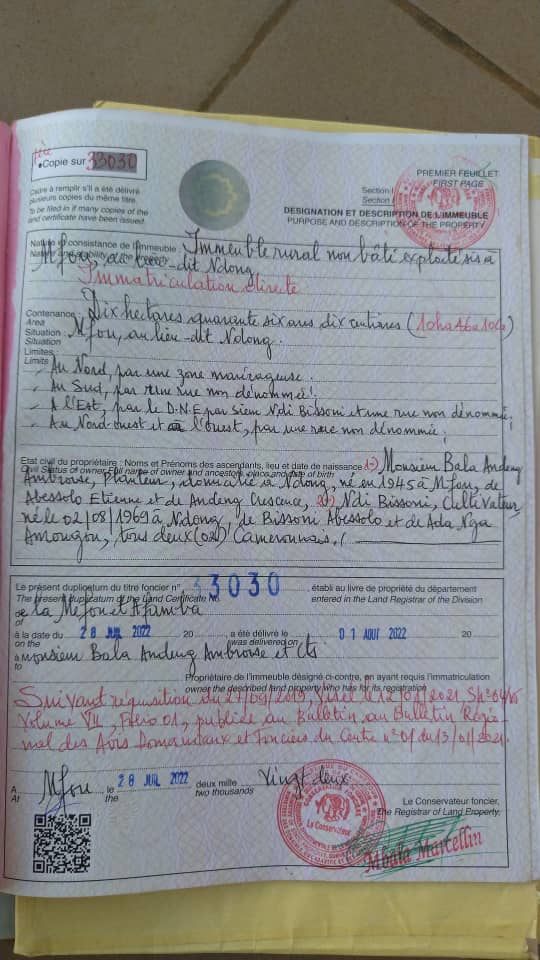 1ère Copie sur 33030
Cadre à remplir s'il a été délivré
plusieurs copies du même titre.
To be filed in if many copies of the
land certificate have been issued.
PREMIER FEUILLET
FIRST PAGE
Section I
Section I
DESIGNATION ET DESCRIPTION DE L'IMMEUBLE
PURPOSE AND DESCRIPTION OF THE PROPERTY
Nature et consistance de l'immeuble Immeuble rural non bâti exploité sis à
Mfou, au lieu-dit Ndong
Immatriculation directe
Contenance Dix hectares quarante six ares dix centiares (10ha46a10ca)
Area
Situation Mfou, au lieu-dit Ndong.
Situation
Limites
Limits
- Au Nord, par une zone marécageuse.
- Au Sud, par une rue non dénommée ;
- A l'Est, par le D.N.E par sieur Ndi Bissoni et une rue non dénommée ;
- Au Nord-ouest et à l'ouest, par une rue non dénommée ;
Etat civil du propriétaire : Noms et Prénoms des ascendants, lieu et date de naissance 1-) Monsieur Bala Andeng
Civil Status of owner, Full name of owner and ancestors, place and date of birth
Ambroise, Planteur, domicilié à Ndong, né en 1945 à Mfou, de
Abessolo Etienne et de Andeng Crescence, 2-) Ndi Bissoni, Cultivateur,
né le 02/08/1969 à Ndong, de Bissoni Abessolo et de Ada Nga
Amougou, tous deux (02) Camerounais. /
Le présent duplicatum du titre foncier n° 33030, établi au livre de propriété du département
The present duplicatum of the Land Certificate No. entered in the Land Registrar of the Division
de la Mefou et Afamba
of
à la date du 28 JUIL 2022 20 , a été délivré le 01 AOUT 2022 20
on the was delivered on
à Monsieur Bala Andeng Ambroise et Cts
to
Propriétaire de l'immeuble désigné ci-contre, en ayant requis l'immatriculation
owner the described land property who has for its registration
Suivant réquisition du 27/09/2019, Visée le 12/01/2021 S/n°
Volume VII, Folio 01, publiée au Bulletin au Bulletin Régio-
nal des Avis Domaniaux et Fonciers du Centre n°01 du 13/01/2021.
A Mfou, le 28 JUIL 2022 deux mille Vingt deux
At the two thousands
Le Conservateur foncier,
The Registrar of Land Property,
Le Conservateur
Mbala Marcellin